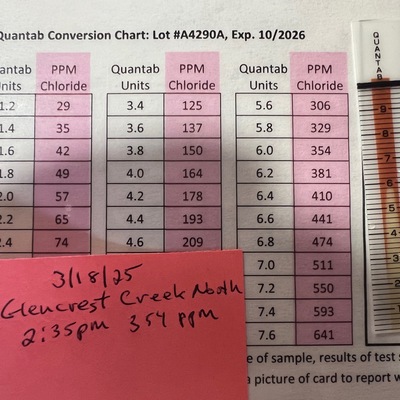 Quantab Conversion Chart: Lot #A4290A, Exp. 10/2026
Quantab Units PPM Chloride Quantab Units PPM Chloride Quantab Units PPM Chloride
1.2 29 3.4 125 5.6 306
1.4 35 3.6 137 5.8 329
1.6 42 3.8 150 6.0 354
1.8 49 4.0 164 6.2 381
2.0 57 4.2 178 6.4 410
2.2 65 4.4 193 6.6 441
2.4 74 4.6 209 6.8 474
7.0 511
7.2 550
7.4 593
7.6 641
3/18/25
Glencrest Creek North
2:35pm 354 ppm
e of sample, results of test s
a picture of card to report w
QUANTAB
9
8
7
6
5
4
3
2
1